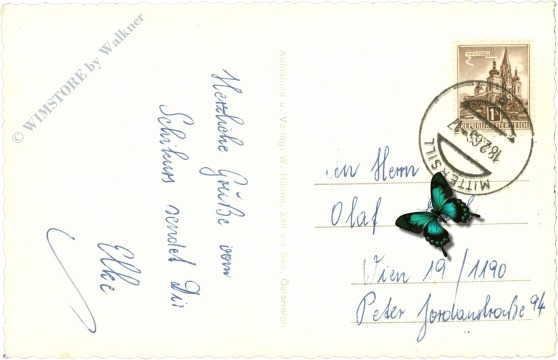 © WIMSTORE by Walkner
Herzliche Grüße vom
Schikurs sendet Dir
Elke
Aufnahme u. Verlag: W. Hühne, Zell am See, Österreich
MARIAZELL
REPUBLIK ÖSTERREICH
MITTERSILL
18.2.63-17
Herrn
Olaf
Wien 19/1190
Peter Jordanstraße 94